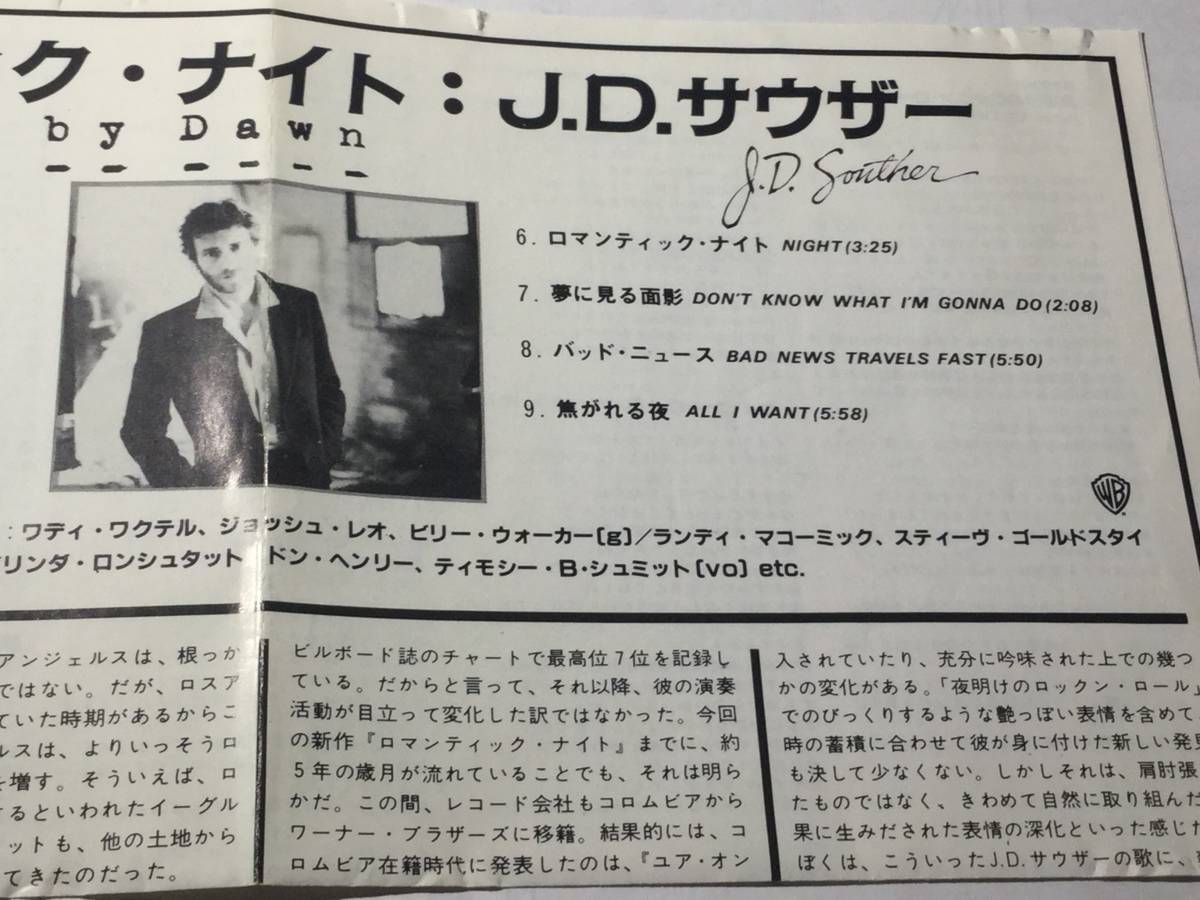 ク・ナイト：J.D.サウザー
by Dawn
J.D. Souther
6. ロマンティック・ナイト NIGHT(3:25)
7. 夢に見る面影 DON'T KNOW WHAT I'M GONNA DO(2:08)
8. バッド・ニュース BAD NEWS TRAVELS FAST(5:50)
9. 焦がれる夜 ALL I WANT(5:58)
WB
：ワディ・ワクテル、ジョッシュ・レオ、ビリー・ウォーカー〔g〕／ランディ・マコーミック、スティーヴ・ゴールドスタイ
リンダ・ロンシュタット ドン・ヘンリー、ティモシー・B・シュミット〔vo〕etc.
アンジェルスは、根っか
ではない。だが、ロスア
ていた時期があるからこ
ルスは、よりいっそうロ
を増す。そういえば、ロ
するといわれたイーグル
ットも、他の土地から
てきたのだった。
ビルボード誌のチャートで最高位7位を記録し
ている。だからと言って、それ以降、彼の演奏
活動が目立って変化した訳ではなかった。今回
の新作『ロマンティック・ナイト』までに、約
5年の歳月が流れていることでも、それは明ら
かだ。この間、レコード会社もコロムビアから
ワーナー・ブラザーズに移籍。結果的には、コ
ロムビア在籍時代に発表したのは、『ユア・オン
入されていたり、充分に吟味された上での幾つ
かの変化がある。「夜明けのロックン・ロール」
でのびっくりするような艶っぽい表情を含めて、
時の蓄積に合わせて彼が身に付けた新しい発見
も決して少なくない。しかしそれは、肩肘張っ
たものではなく、きわめて自然に取り組んだ
果に生みだされた表情の深化といった感じだ
ぼくは、こういったJ.D.サウザーの歌に、